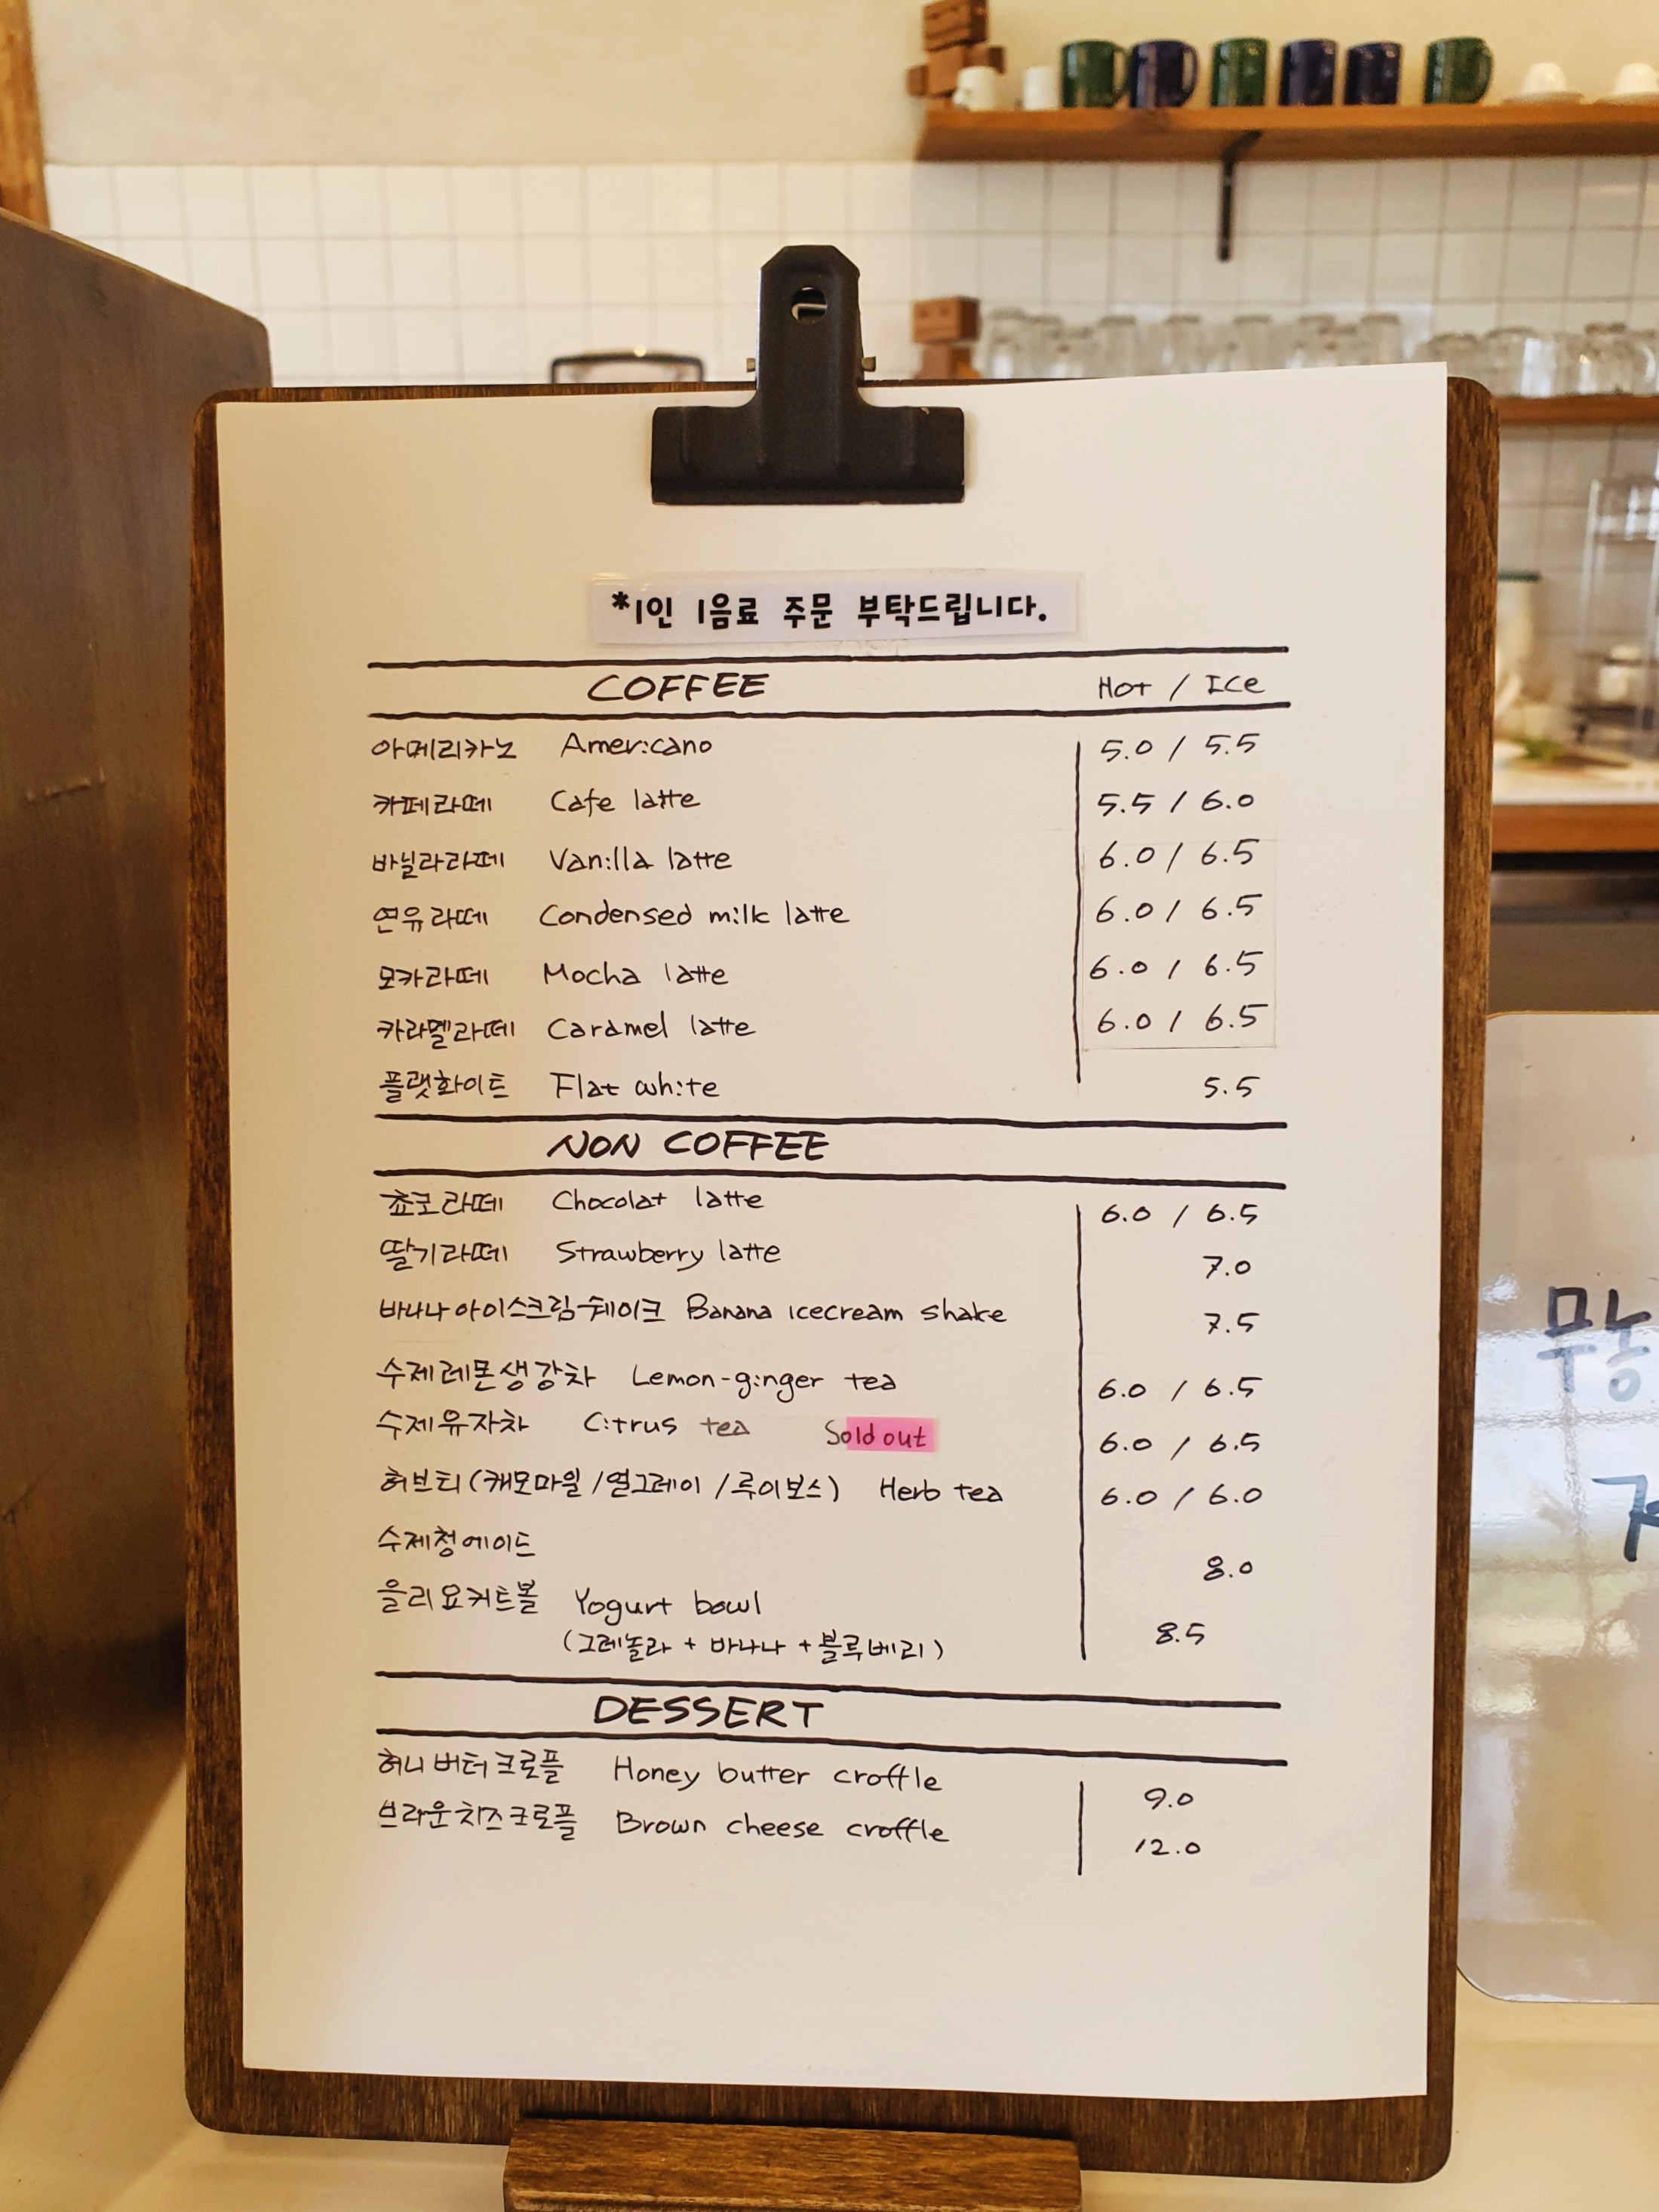 *1인 1음료 주문 부탁드립니다.
COFFEE Hot / Ice
아메리카노 Americano 5.0 / 5.5
카페라떼 Cafe latte 5.5 / 6.0
바닐라라떼 Vanilla latte 6.0 / 6.5
연유라떼 Condensed milk latte 6.0 / 6.5
모카라떼 Mocha latte 6.0 / 6.5
카라멜라떼 Caramel latte 6.0 / 6.5
플랫화이트 Flat white 5.5
NON COFFEE
쵸코라떼 Chocolat latte 6.0 / 6.5
딸기라떼 Strawberry latte 7.0
바나나아이스크림쉐이크 Banana icecream shake 7.5
수제레몬생강차 Lemon-ginger tea 6.0 / 6.5
수제유자차 Citrus tea Sold out 6.0 / 6.5
허브티(캐모마일/얼그레이/루이보스) Herb tea 6.0 / 6.0
수제청에이드 8.0
을리요커트볼 Yogurt bowl 8.5
(그레놀라 + 바나나 + 블루베리)
DESSERT
허니버터크로플 Honey butter croffle 9.0
브라운치즈크로플 Brown cheese croffle 12.0